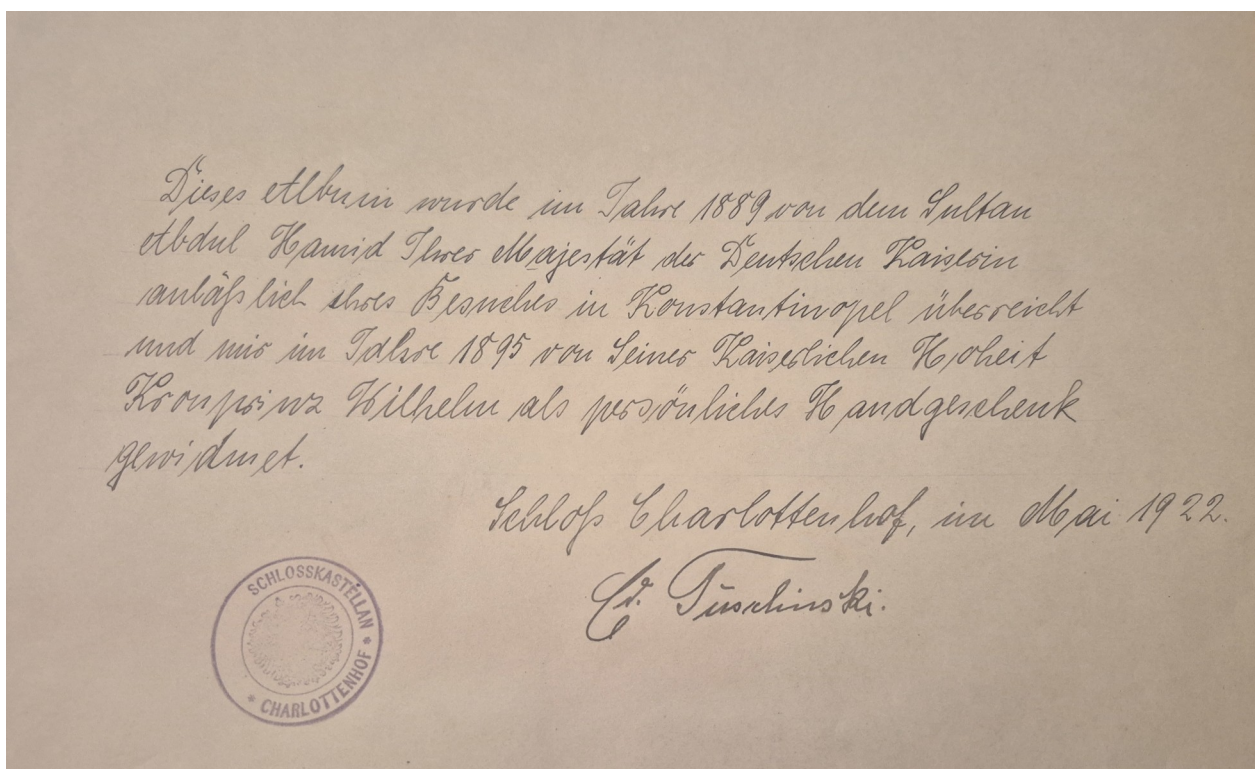 Dieses Album wurde im Jahre 1889 von dem Sultan
Abdul Hamid Ihrer Majestät der Deutschen Kaiserin
anläßlich ihres Besuches in Konstantinopel überreicht
und mir im Jahre 1895 von Seiner Kaiserlichen Hoheit
Kronprinz Wilhelm als persönliches Handgeschenk
gewidmet.
Schloß Charlottenhof, im Mai 1922.
Ed.
SCHLOSSKASTELLAN
* CHARLOTTENHOF *